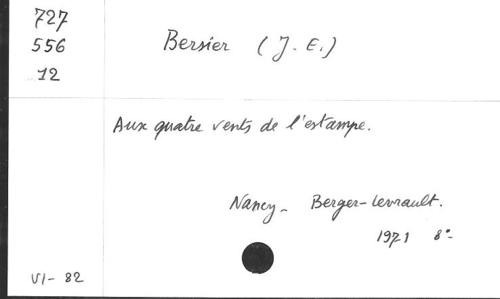 727
556
12
Bersier (J. E.)
Aux quatre vents de l'estampe.
Nancy - Berger-Levrault.
1971 8°-
VI - 82